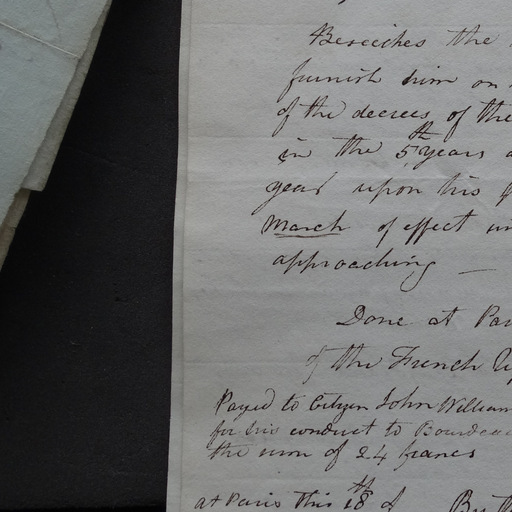 Beseiches the
furnish him on
of the decrees of the
in the 5th years
year upon his
March of effect
approaching
Done at Par
of the French
Payed to Citizen John William
for his conduct to Bourdeau
the sum of 24 francs
at Paris this 18th of By th